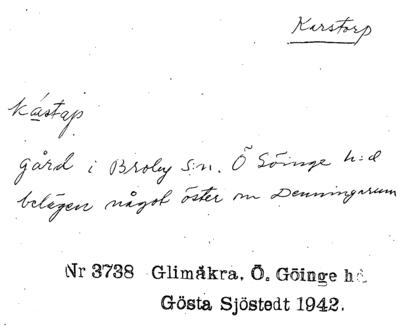 Karstorp
kástap
gård i Broby s:n. Ö Göinge h:d
belägen något öster om Denningarum
Nr 3738 Glimåkra, Ö. Göinge hd.
Gösta Sjöstedt 1942.